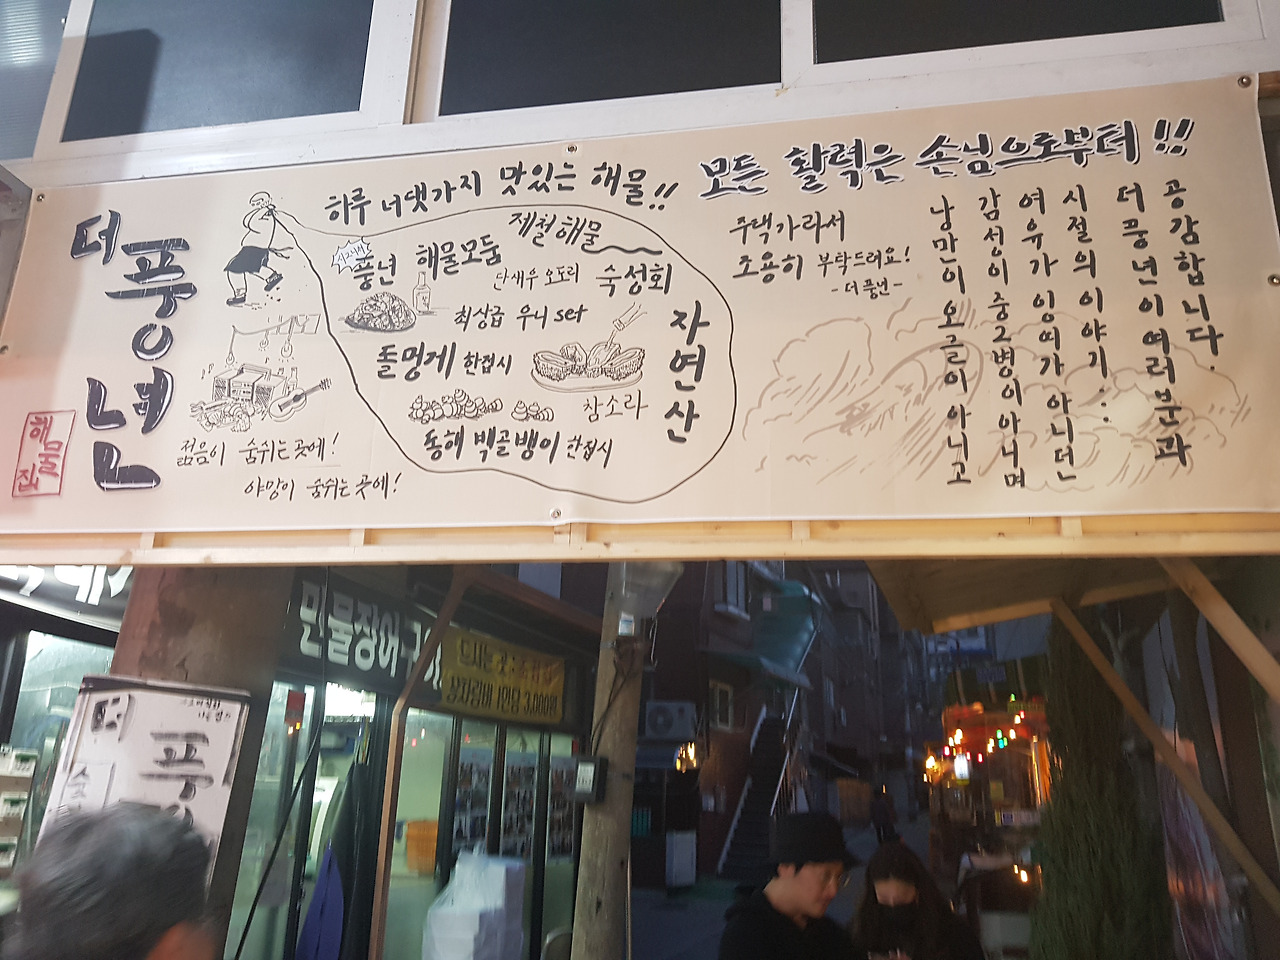 더
풍년
해물집
하루 너댓가지 맛있는 해물!!
제철해물
풍년 해물모둠
단새우 오도리 숙성회
최상급 우니 set
자연산
돌멍게 한접시
참소라
동해 백골뱅이 한접시
젊음이 숨쉬는 곳에!
야망이 숨쉬는 곳에!
모든 활력은 손님으로부터!!
주택가라서
조용히 부탁드려요!
-더풍년-
공감합니다.
더풍년이 여러분과
시절의 이야기...
여유가 잉여가 아니던
감성이 중2병이 아니며
낭만이 오글이 아니고
민물장어구
상차림비 1인당 3,000원
더
풍